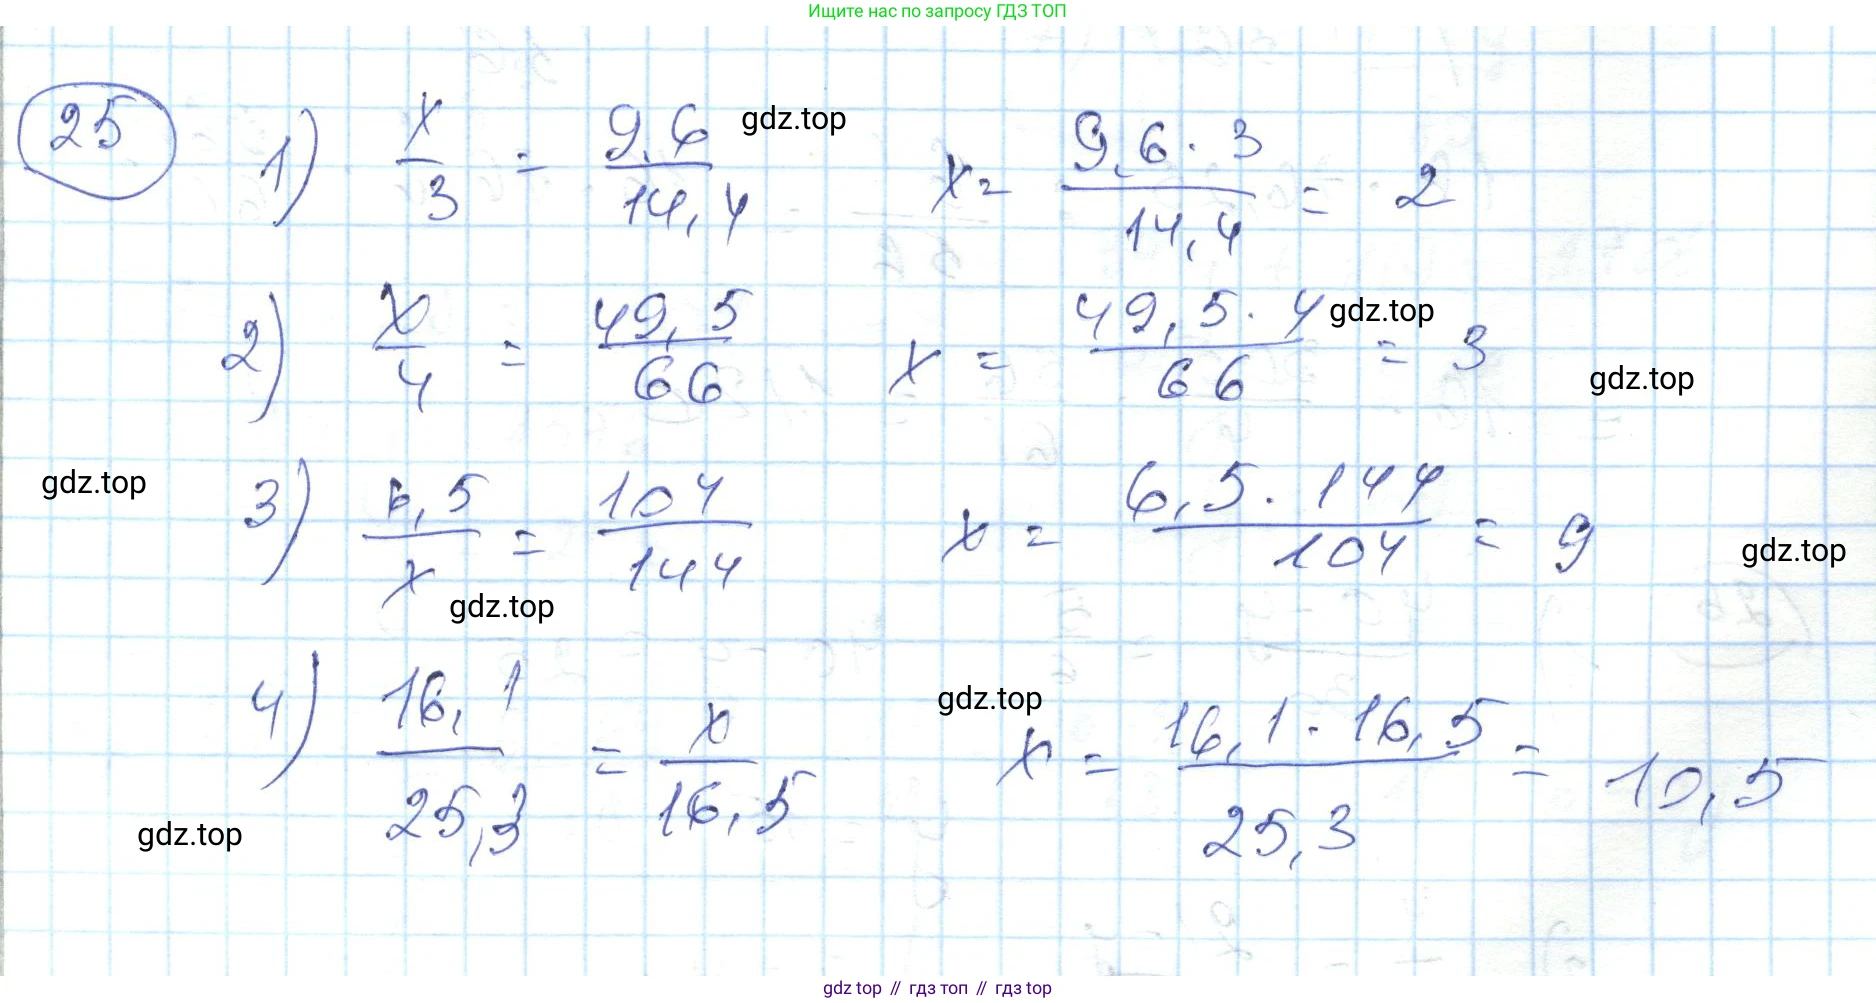 Ищите нас по запросу ГДЗ ТОП
25 1) x/3 = 9,6/14,4 gdz.top x = 9,6 · 3/14,4 = 2
2) x/4 = 49,5/66 x = 49,5 · 4/66 = 3 gdz.top
gdz.top
gdz.top 3) 6,5/x = 104/144 x = 6,5 · 144/104 = 9 gdz.top
gdz.top
4) 16,1/25,3 = x/16,5 gdz.top x = 16,1 · 16,5/25,3 = 10,5
gdz.top
gdz top // гдз топ // гдз top